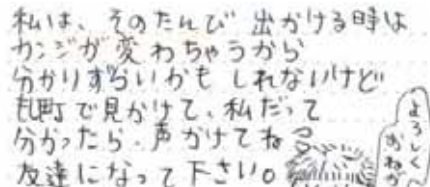 私は、そのたんび 出かける時は
カンジが変わちゃうから
分かりずらいかも しれないけど
も町で見かけて、私だって
分かったら、声かけてね
友達になって下さい。
よろしく
おねが